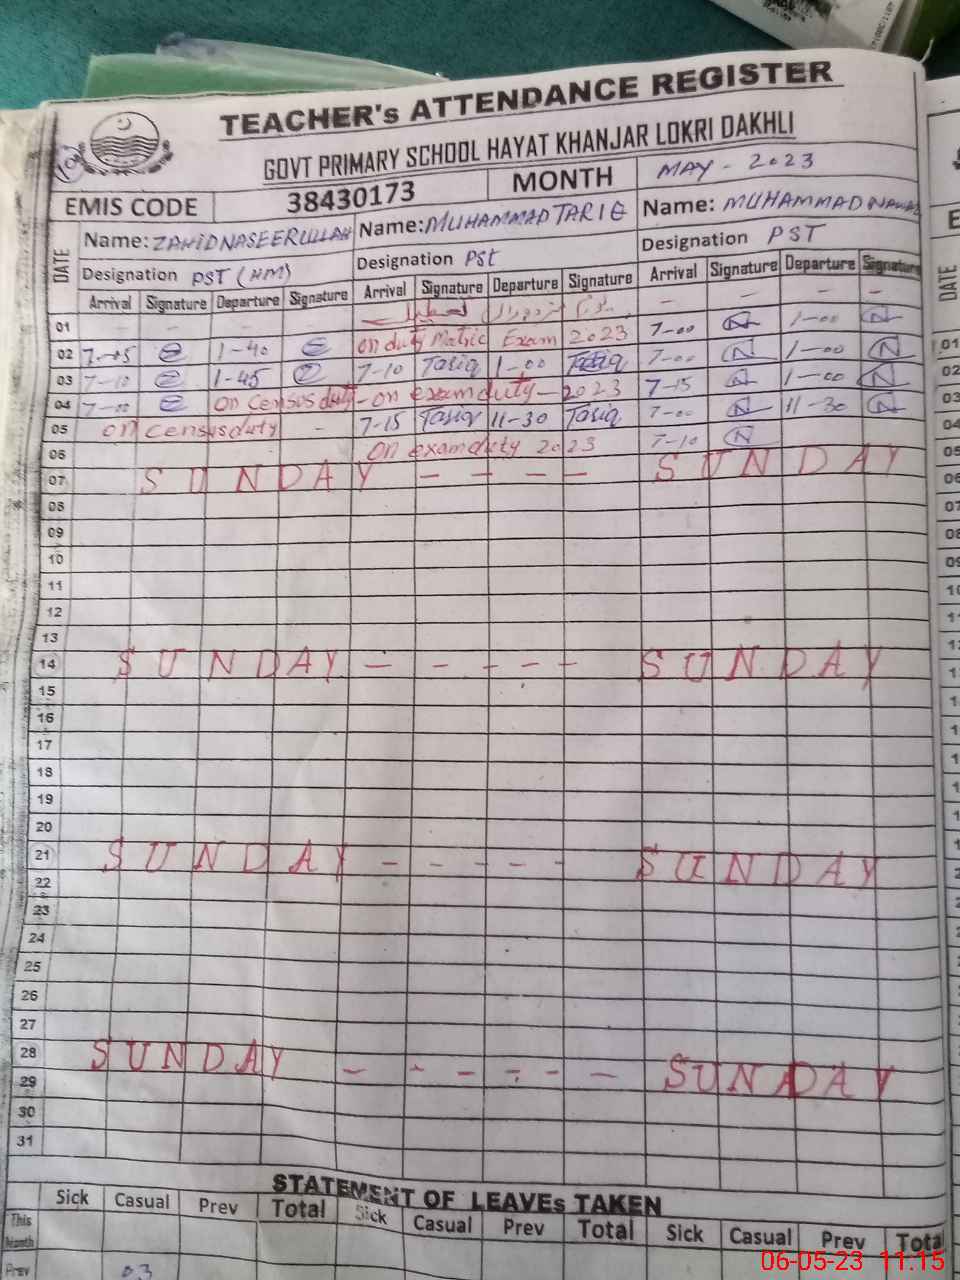 TEACHER's ATTENDANCE REGISTER
GOVT PRIMARY SCHOOL HAYAT KHANJAR LOKRI DAKHLI
EMIS CODE 38430173 MONTH MAY - 2023
DATE Name: ZAHID NASEERULLAH Name: MUHAMMAD TARIQ Name: MUHAMMAD NAWAZ
Designation PST (HM) Designation PST Designation PST
Arrival Signature Departure Signature Arrival Signature Departure Signature Arrival Signature Departure Signature
01 - - - - - - - -
02 7-05 1-40 on duty Matric Exam 2023 7-00 N 1-00 N
03 7-10 1-45 7-10 Tariq 1-00 Tariq 7-00 N 1-00 N
04 7-00 on census duty - on exam duty - 2023 7-15 N 1-00 N
05 on census duty - 7-15 Tariq 11-30 Tariq 7-00 N 11-30 N
06 on exam duty 2023 7-10 N
07 SUNDAY - - - - SUNDAY
08
09
10
11
12
13
14 SUNDAY - - - - SUNDAY
15
16
17
18
19
20
21 SUNDAY - - - - - SUNDAY
22
23
24
25
26
27
28 SUNDAY - - - - - - SUNDAY
29
30
31
STATEMENT OF LEAVEs TAKEN
Sick Casual Prev Total Sick Casual Prev Total Sick Casual Prev Tota
This Month
Prev 03
06-05-23 11.15